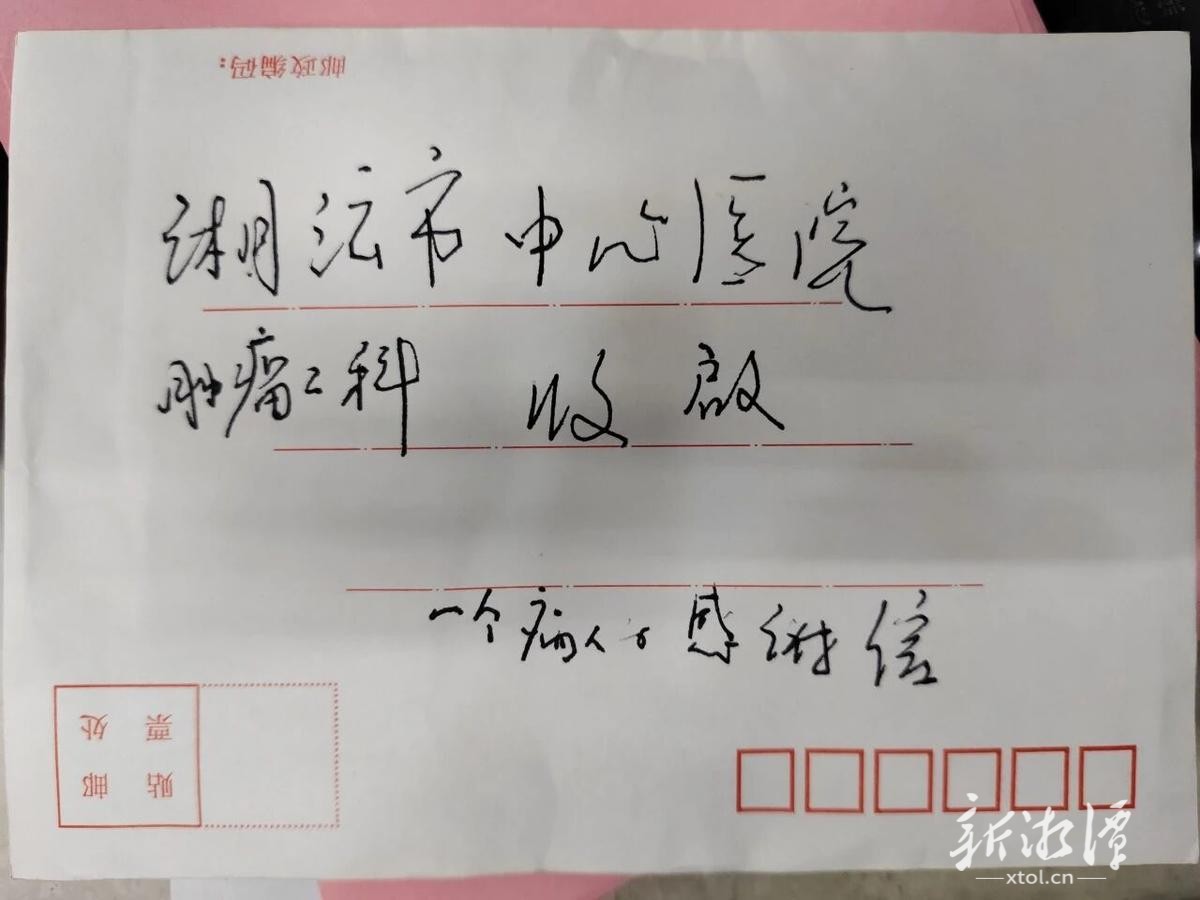 邮政编码：
湘沄市中心医院
肿瘤二科 收启
一个病人的感谢信
贴邮
票处
新湘潭
xtol.cn